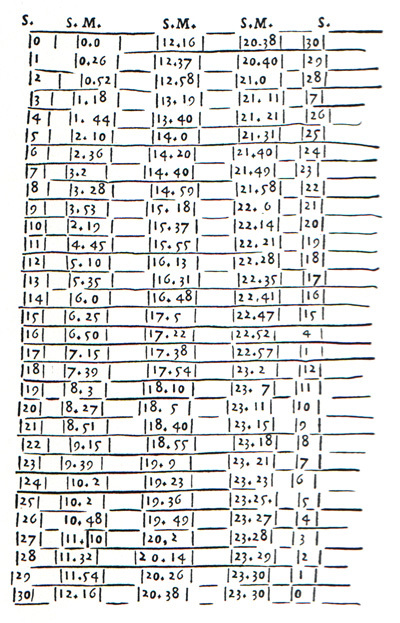 S. S. M. S. M. S. M. S.
0 0.0 12.16 20.38 30
1 0.26 12.37 20.40 29
2 0.52 12.58 21.0 28
3 1.18 13.19 21.11 7
4 1.44 13.40 21.21 26
5 2.10 14.0 21.31 25
6 2.36 14.20 21.40 24
7 3.2 14.40 21.49 23
8 3.28 14.59 21.58 22
9 3.53 15.18 22.6 21
10 2.19 15.37 22.14 20
11 4.45 15.55 22.21 19
12 5.10 16.13 22.28 18
13 5.35 16.31 22.35 17
14 6.0 16.48 22.41 16
15 6.25 17.5 22.47 15
16 6.50 17.22 22.52 4
17 7.15 17.38 22.57 1
18 7.39 17.54 23.2 12
19 8.3 18.10 23.7 11
20 8.27 18.5 23.11 10
21 8.51 18.40 23.15 9
22 9.15 18.55 23.18 8
23 9.39 19.9 23.21 7
24 10.2 19.23 23.23 6
25 10.2 19.36 23.25. 5
26 10.48 19.49 23.27 4
27 11.10 20,2 23.28 3
28 11.32 20.14 23.29 2
29 11.54 20.26 23.30 1
30 12.16 20.38 23.30 0